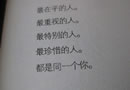 最在乎的人。
最重视的人。
最特别的人。
最珍惜的人。
都是同一个你。